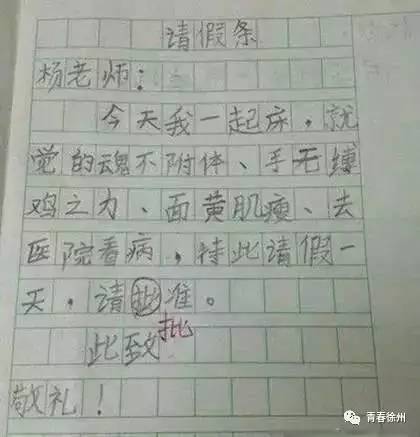 请假条
杨老师：
今天我一起床，就
觉的魂不附体、手无缚
鸡之力、面黄肌瘦、去
医院看病，特此请假一
天，请批准。
批
此致
敬礼！
青春徐州